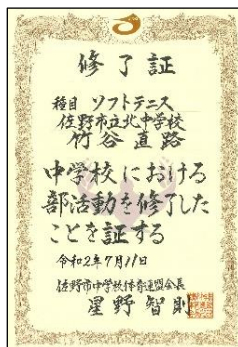 修了証
種目 ソフトテニス
佐野市立北中学校
竹谷直路
中学校における
部活動を修了した
ことを証する
令和2年7月11日
佐野市中学校体育連盟会長
星野智則